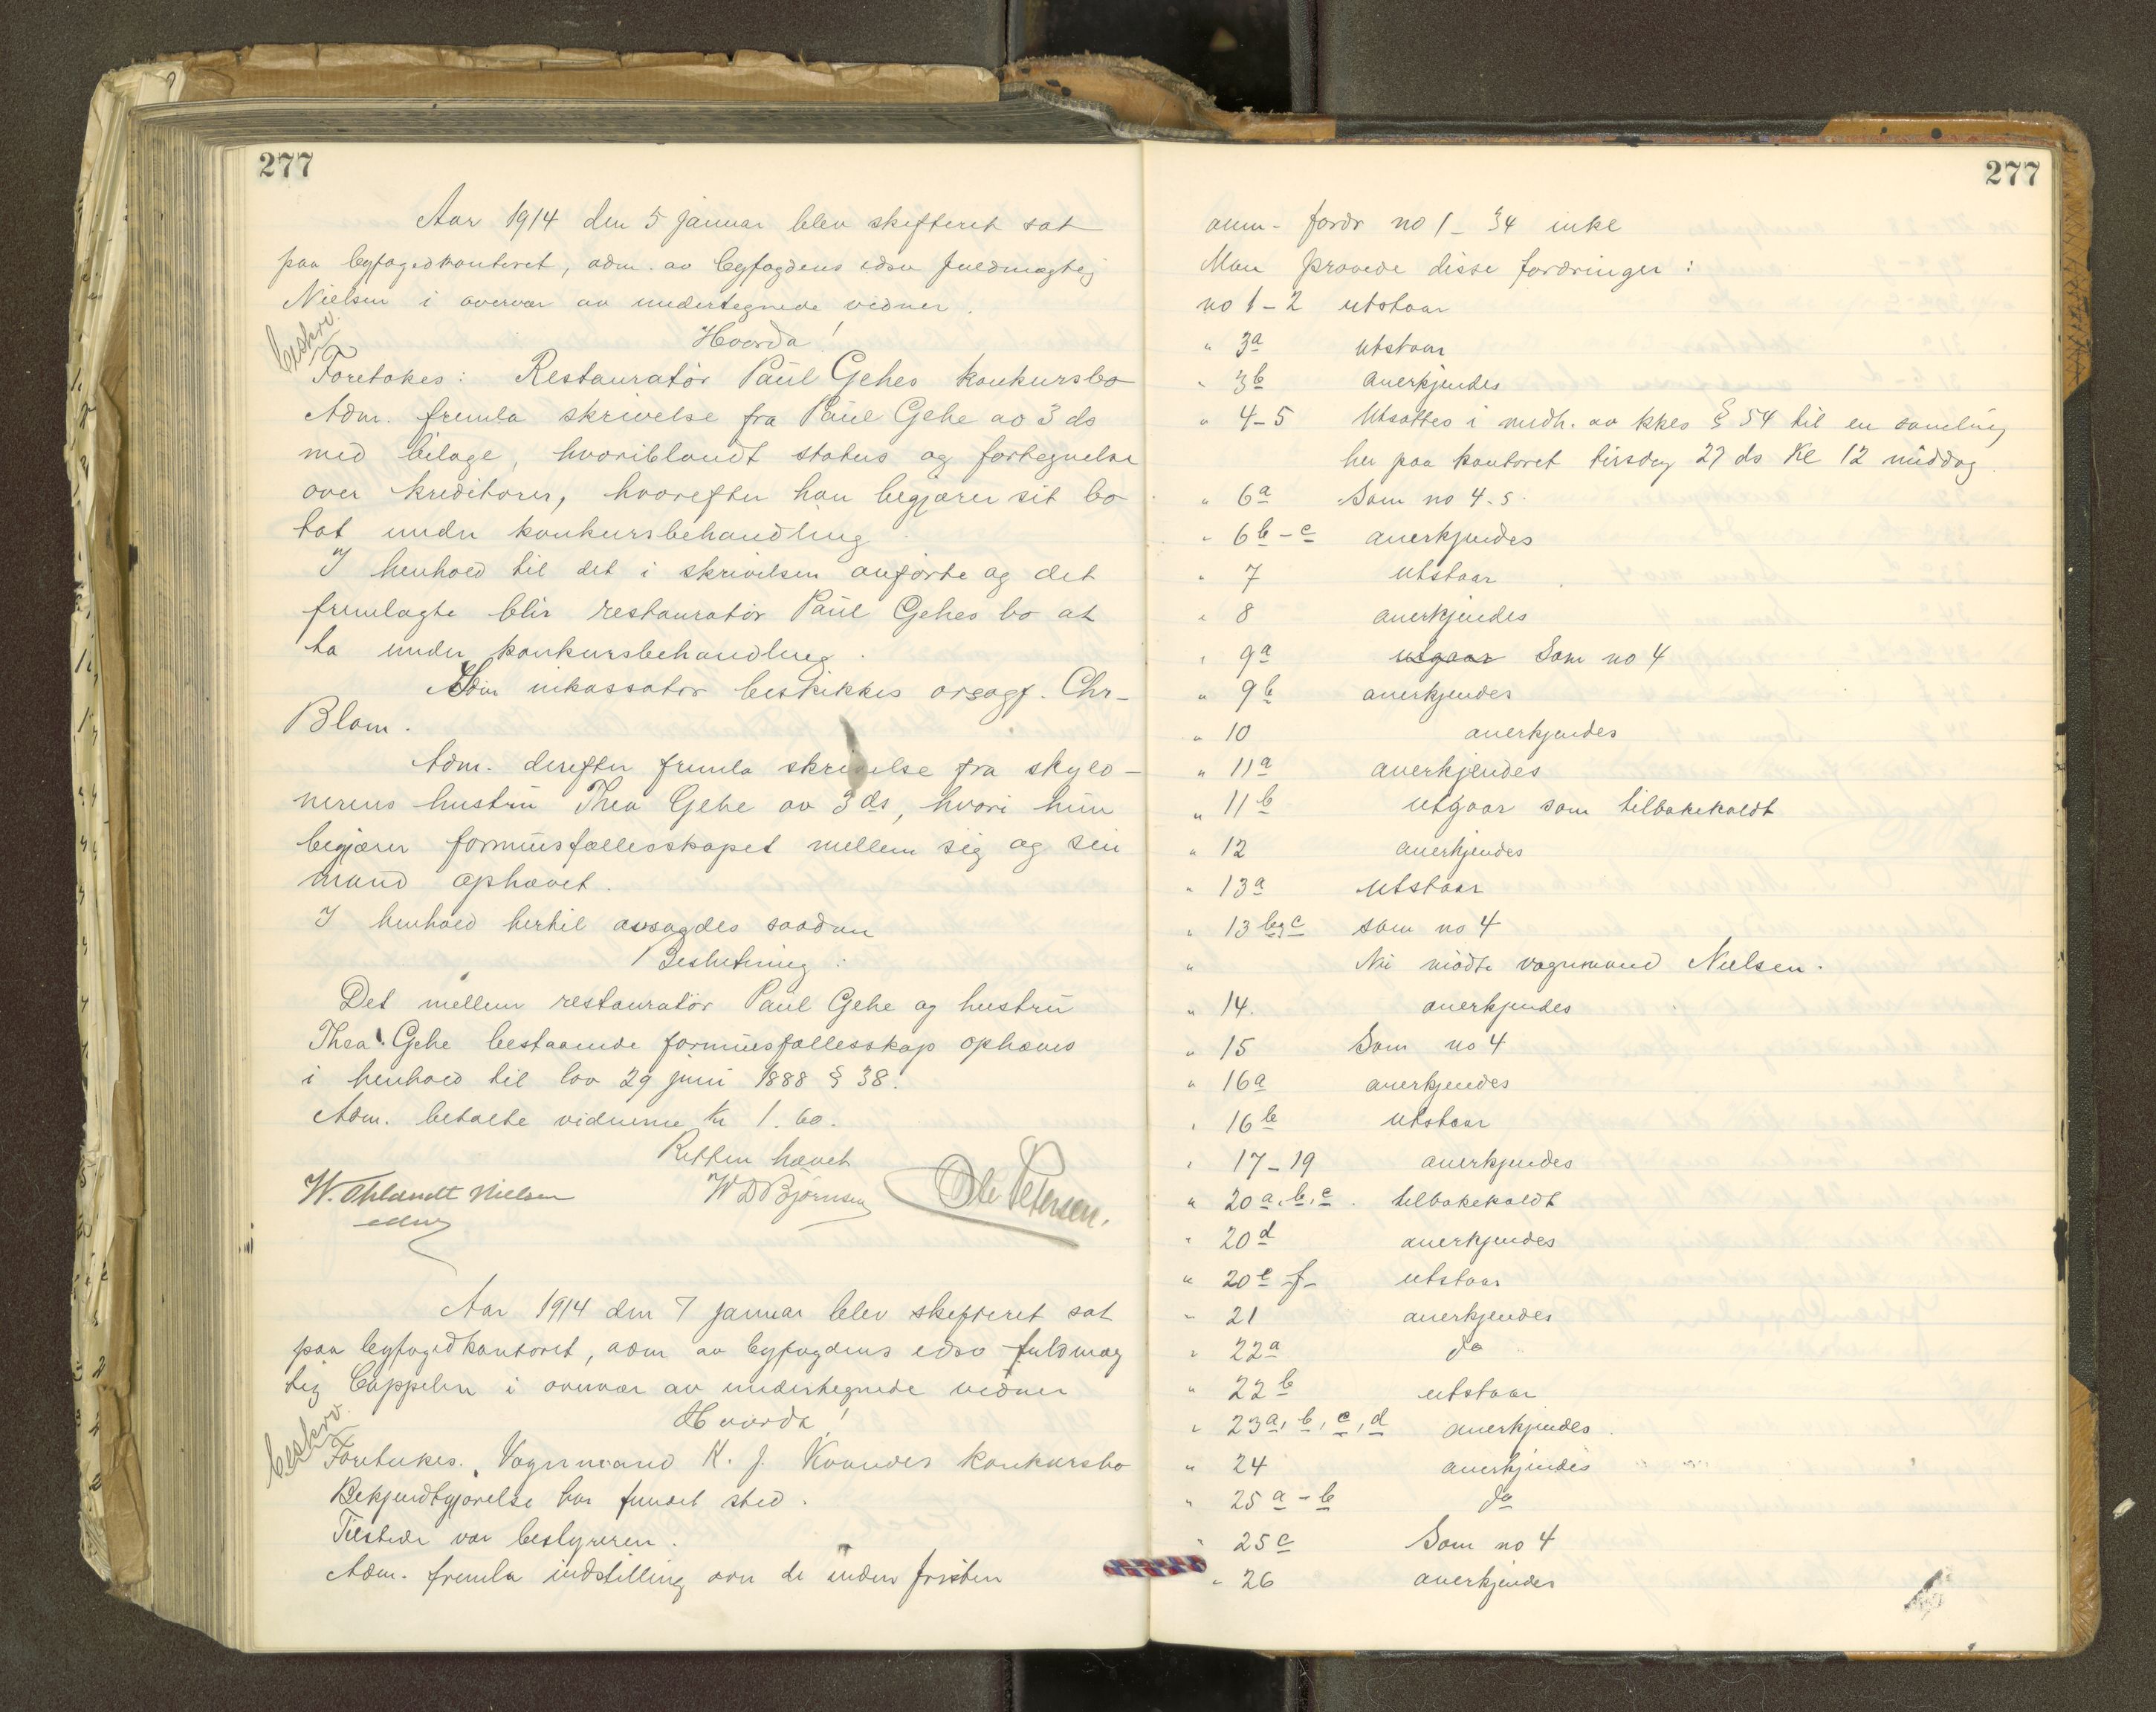 277
Aar 1914 den 5 januar blev skifteret sat
paa byfogedkontoret, adm. av byfogdens edsv fuldmægtig
Nielsen i overvær av undertegnede vidner.
beskrv.
Hvorda!
Foretokes: Restauratør Paul Gehes konkursbo
Adm. fremla skrivelse fra Paul Gehe av 3 ds
med bilage, hvoriblandt status og fortegnelse
over kreditorer, hvorefter han begjærer sit bo
tat under konkursbehandling.
I henhold til det i skrivelsen anførte og det
fremlagte blir restauratør Paul Gehes bo at
ta under konkursbehandling.
Som inkassator beskikkes orsagf. Chr-
Blom.
Adm. derefter fremla skrivelse fra skyld-
nerens hustru Thea Gehe av 3 ds, hvori hun
begjærer formuesfællesskapet mellem sig og sin
mand ophævet.
I henhold hertil avsagdes saadan
Beslutning:
Det mellem restauratør Paul Gehe og hustru
Thea Gehe bestaaende formuesfællesskap ophæves
i henhold til lov 29 juni 1888 § 38.
Adm. betalte vidnerne kr 1.60.
Retten hævet
W. Nielsen WD Bjørnsen Ole Petersen.
Aar 1914 den 7 januar blev skifteret sat
paa byfogedkontoret, adm av byfogdens edsv fuldmæg
tig Cappelen i overvær av undertegnede vidner
Hvorda!
beskrv.
Foretokes. Vognmand K. J. konkursbo
Bekjendtgjørelse har fundet sted.
Tilstede var bestyreren.
Adm. fremla indstilling over de inden fristen
277
anm. fordr no 1 - 34 inkl
Man prøvede disse fordringer:
no 1 - 2 utstaar
" 3a utstaar
" 3b anerkjendes
" 4-5 Utsattes i medh. av kkls § 54 til en samling
her paa kontoret tirsdag 27 ds Kl 12 middag
" 6a Som no 4-5.
" 6b - c anerkjendes
" 7 utstaar
" 8 anerkjendes
" 9a utgaar Som no 4
" 9b anerkjendes
" 10 anerkjendes
" 11a anerkjendes
" 11b utgaar som tilbakekaldt
" 12 anerkjendes
" 13a utstaar
" 13 b og c som no 4
" Nu mødte vognmand Nielsen.
" 14. anerkjendes
" 15 Som no 4
" 16a anerkjendes
" 16b utstaar
" 17-19 anerkjendes
" 20 a, b, c. tilbakekaldt
" 20d anerkjendes
" 20e-f- utstaar
" 21 anerkjendes
" 22a do
" 22b utstaar
" 23a, b, c, d anerkjendes.
" 24 anerkjendes
" 25a-b do
" 25c Som no 4
" 26 anerkjendes